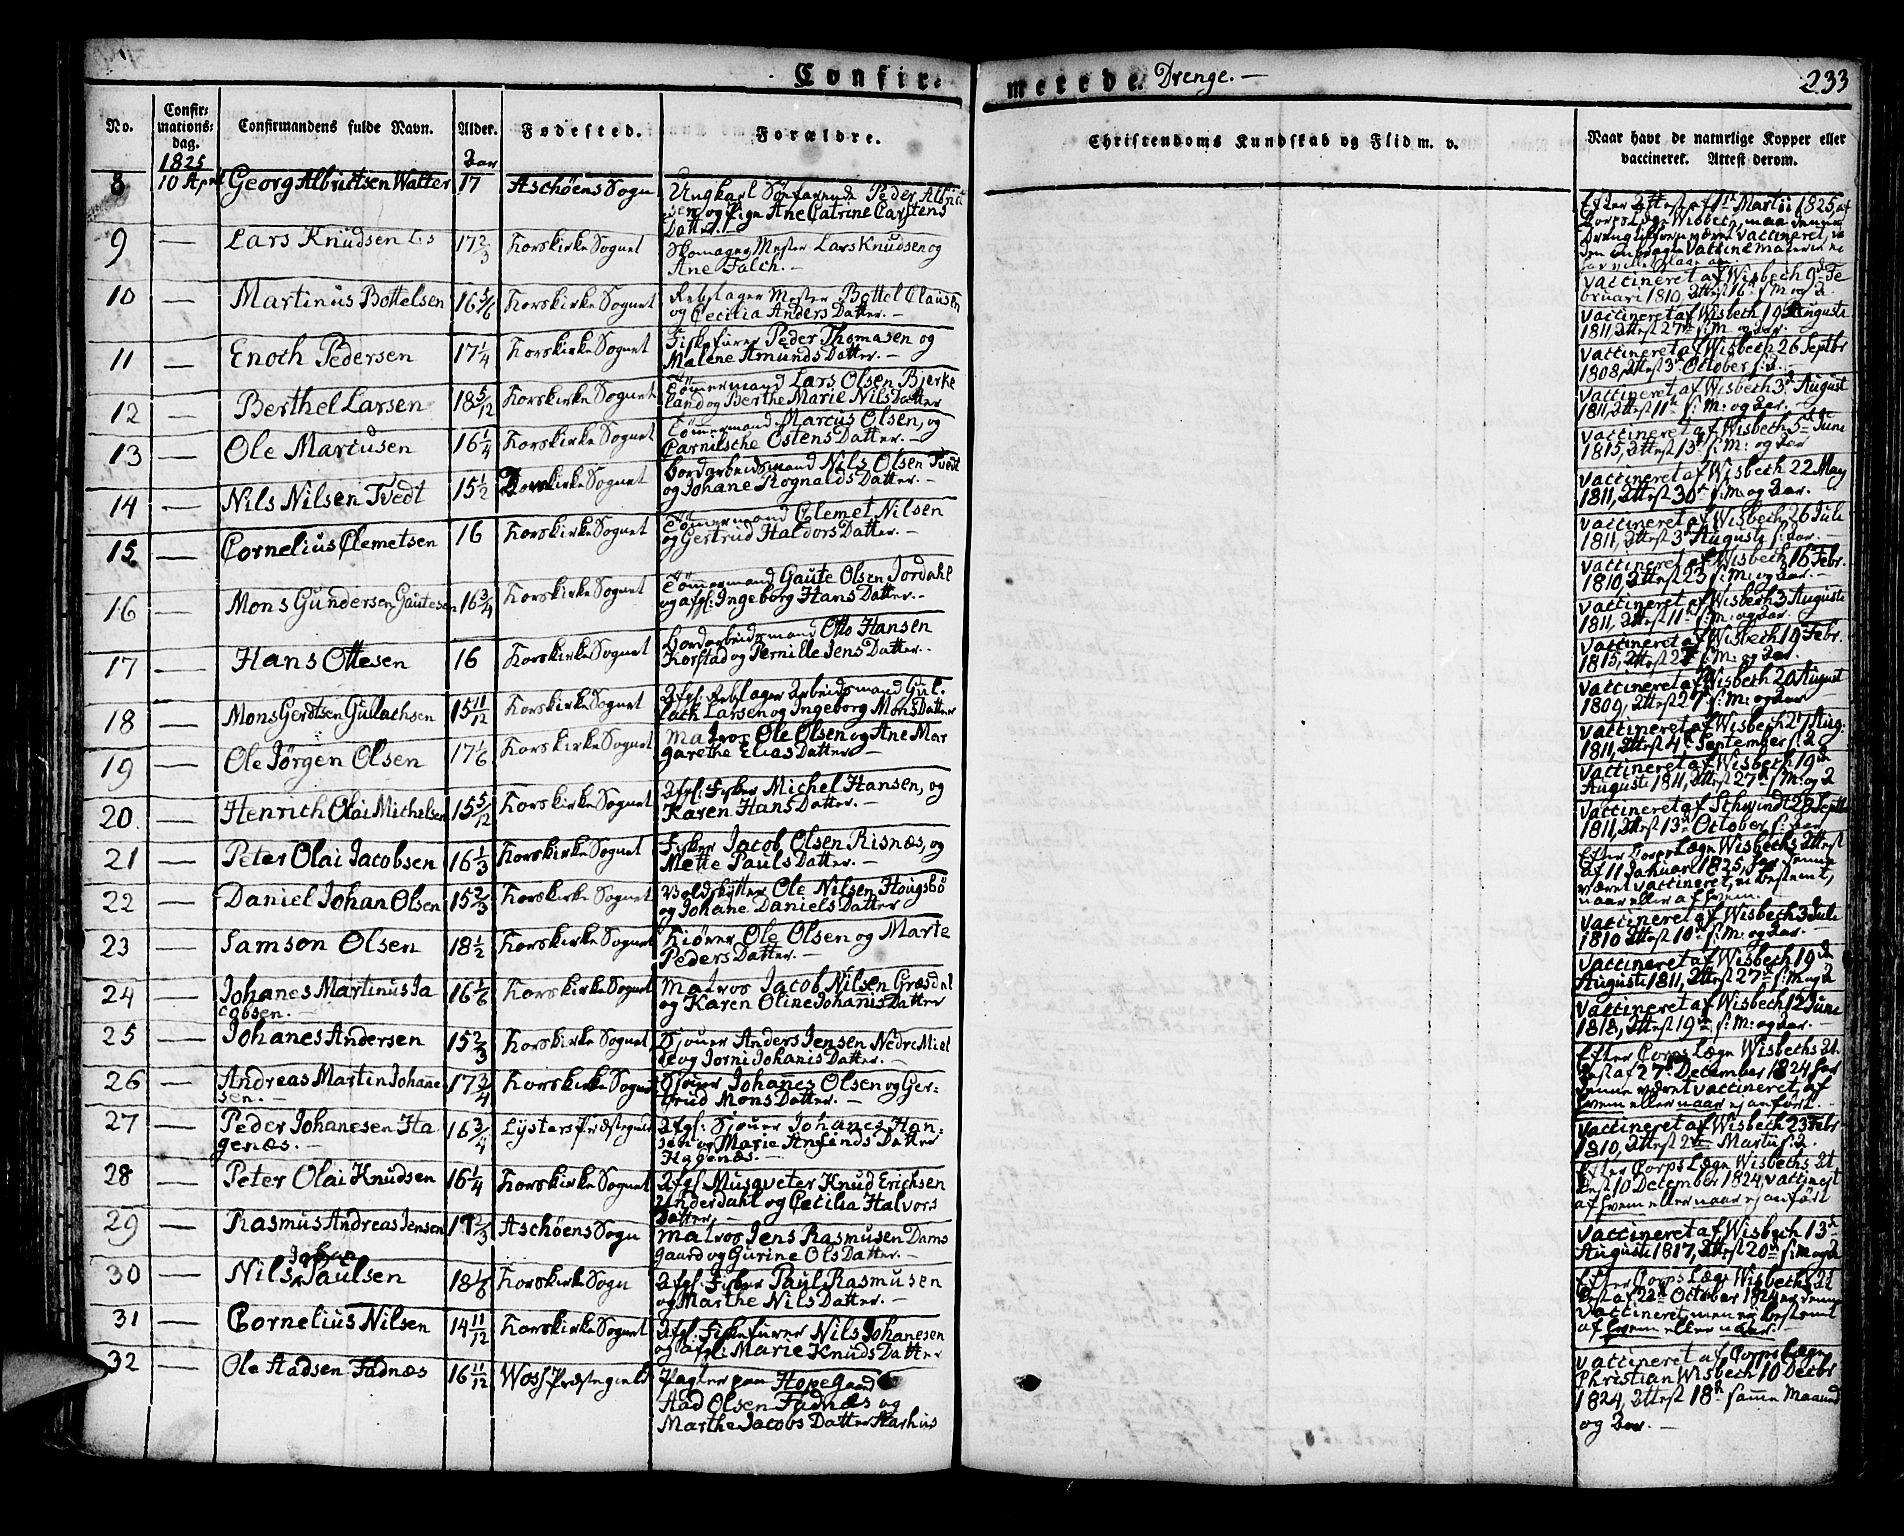 Confir-
merede Drenge. —
233
No.
Confir-
mations-
dag.
Confirmandens fulde Navn.
Alder.
Fødested.
Forældre.
Christendoms Kundskab og Flid m. v.
Naar havt de naturlige Kopper eller
vaccineret. Attest derom.
1825
Aar
8 10 April Georg Albrittsen Walter 17 Aschöens Sogn Ungkarl Söfarende Peder Albrit
sen og Pige Ane Catrine Carstens
Datter.
Efter Attest af 1te Martii 1825, af
Corps Læge Wisbech
9 — Lars Knudsen 17 2/3 Korskirke Sognet Skomager Mester Lars Knudsen og
Ane Falch. —
Vaccineret af Wisbech 9de Fe
bruari 1810, Attest 16de s: M: og A
10 — Martinus Bottelsen 16 5/6 Korskirke Sognet Rebslager Mester Bottel Clausen
og Cecilia Anders Datter. —
Vaccineret af Wisbech 19 Augusti
1811, Attest 27de s: M: og Aar.
11 — Enoch Pedersen 17 1/4 Korskirke Sognet Fiskefører Peder Thomasen og
Malene Amunds Datter. —
Vaccineret af Wisbech 26 Septbr
1808, Attest 3de October s: A.
12 — Berthel Larsen 18 5/12 Korskirke Sognet Tömermand Lars Olsen Bjerke
land og Berthe Marie Nils Datter
Vaccineret af Wisbech 3de August
1811, Attest 11te s: M: og Aar.
13 — Ole Marcusen 16 1/4 Korskirke Sognet Tömermand Marcus Olsen, og
Carnitsche Ostens Datter. —
Vaccineret af Wisbech 5te June
1815, Attest 13de s: M: og Aar
14 — Nils Nilsen Tvedt 15 1/2 Korskirke Sognet Hordarbeidsmand Nils Olsen Tvedt
og Johane Rognalds Datter. —
Vaccineret af Wisbech 22 May
1811, Attest 30te s: M: og Aar.
15 — Cornelius Clemetsen 16 Korskirke Sognet Tömermand Clemet Nilsen
og Gertrud Haldors Datter. —
Vaccineret af Wisbech 26 Juli
1811, Attest 3de Augusti s: Aar.
16 — Mons Gundersen Gautesen 16 3/4 Korskirke Sognet Tömermand Gaute Olsen Jordahl
og afgl: Ingeborg Hans Datter. —
Vaccineret af Wisbech 16 Febr.
1810, Attest 23 s: M: og Aar. —
17 — Hans Ottesen 16 Korskirke Sognet Hordarbeidsmand Otto Hansen
Korstad og Pernille Jens Datter. —
Vaccineret af Wisbech 3 Augusti
1811, Attest 11te s: M: og Aar.
18 — Mons Gerdtsen Gulachsen 15 11/12 Korskirke Sognet Afgl: Rebslager Arbeidsmand Gul-
lach Larsen og Ingeborg Mons Datter
Vaccineret af Wisbech 19 Febr.
1815, Attest 27 s: M: og Aar
19 — Ole Jörgen Olsen 17 1/6 Korskirke Sognet Matros Ole Olsen og Ane Mar
garethe Elias Datter. —
Vaccineret af Wisbech 20 August
1809, Attest 27de s: M: og Aar
20 — Henrich Olai Michelsen 15 5/12 Korskirke Sognet Afgl: Fisker Michel Hansen, og
Karen Hans Datter. —
Vaccineret af Wisbech 27 Aug.
1811, Attest 4de September s: A.
21 — Peter Olai Jacobsen 16 1/3 Korskirke Sognet Fisker Jacob Olsen Risnæs, og
Mette Pauls Datter. —
Vaccineret af Wisbech 19de
Augusti 1811, Attest 27de s: M: og A
22 — Daniel Johan Olsen 15 2/3 Korskirke Sognet Ole Nilsen Hougsbö
og Johane Daniels Datter
Vaccineret af Schwindt 28 Septbr
1811, Attest 13de October s: Aar
23 — Samson Olsen 18 1/2 Korskirke Sognet Kiörer Ole Olsen og Marte
Peders Datter. —
Efter Corps Læge Wisbechs Attest
af 11 Januari 1825, har denne
været vaccineret, ei bestemt,
naar eller af hvem.
24 — Johanes Martinus Ja
cobsen. — 16 1/6 Korskirke Sognet Matros Jacob Nilsen Græsdal
og Karen Oline Johanis Datter
Vaccineret af Wisbech 3 Juli
1810 Attest 10de s: M: og Aar.
25 — Johanes Andersen 15 2/3 Korskirke Sognet Sjouer Anders Jensen Nedre Miel
de og Jorni Johanis Datter. —
Vaccineret af Wisbech 19de
Augusti 1811, Attest 27de s: M: og A
26 — Andreas Martin Johane
sen. — 17 3/4 Korskirke Sognet Sjouer Johanes Olsen og Ger-
trud Mons Datter. —
Vaccineret af Wisbech 12 June
1818, Attest 19de s: M: og Aar. —
27 — Peder Johanesen Ha
genæs. — 16 3/4 Lysters Præstegield Afgl: Sjouer Johanes Han-
sen og Marie Anfinds Datter
Hagenæs. —
Efter Corps Læge Wisbechs At-
test af 27de December 1824 har
denne været vaccineret, af
hvem eller naar ej anfört. —
28 — Peter Olai Knudsen 16 1/4 Korskirke Sognet Afgl: Musqveter Knud Erichsen
Underdahl og Cecilia Halvors
Datter. —
Vaccineret af Wisbech 23 Febr
1810, Attest 2den Martii s: A.
29 — Rasmus Andreas Jensen 19 2/3 Aschöens Sogn Matros Jens Rasmusen Dams
gaard og Gurine Ols Datter. —
Efter Corps Læge Wisbechs At
test 10 December 1824, vaccineret
af hvem eller naar ej anfört
30 — Nils Johan Paulsen 18 1/6 Korskirke Sogn Afgl: Fisker Paul Rasmusen
og Marthe Nils Datter. —
Vaccineret af Wisbech 13de
Augusti 1817, Attest 20de s: M: og A
31 — Cornelius Nilsen 14 11/12 Korskirke Sognet Afgl: Fiskefører Nils Johanesen
og afgl: Marie Knuds Datter
Efter Corps Læge Wisbechs At
test af 22de October 1824 er denne
vaccineret, men ei bestemt
af hvem eller naar. —
32 — Ole Aadsen Fadnæs 16 11/12 Woss Præstegield Pagter paa Hopegaard
Aad Olsen Fadnæs og
Marthe Jacobs Datter Aarhus
Vaccineret af Corps Læge
Christian Wisbech 10 Decbr
1824, Attest 18de samme Maaned
og Aar. —